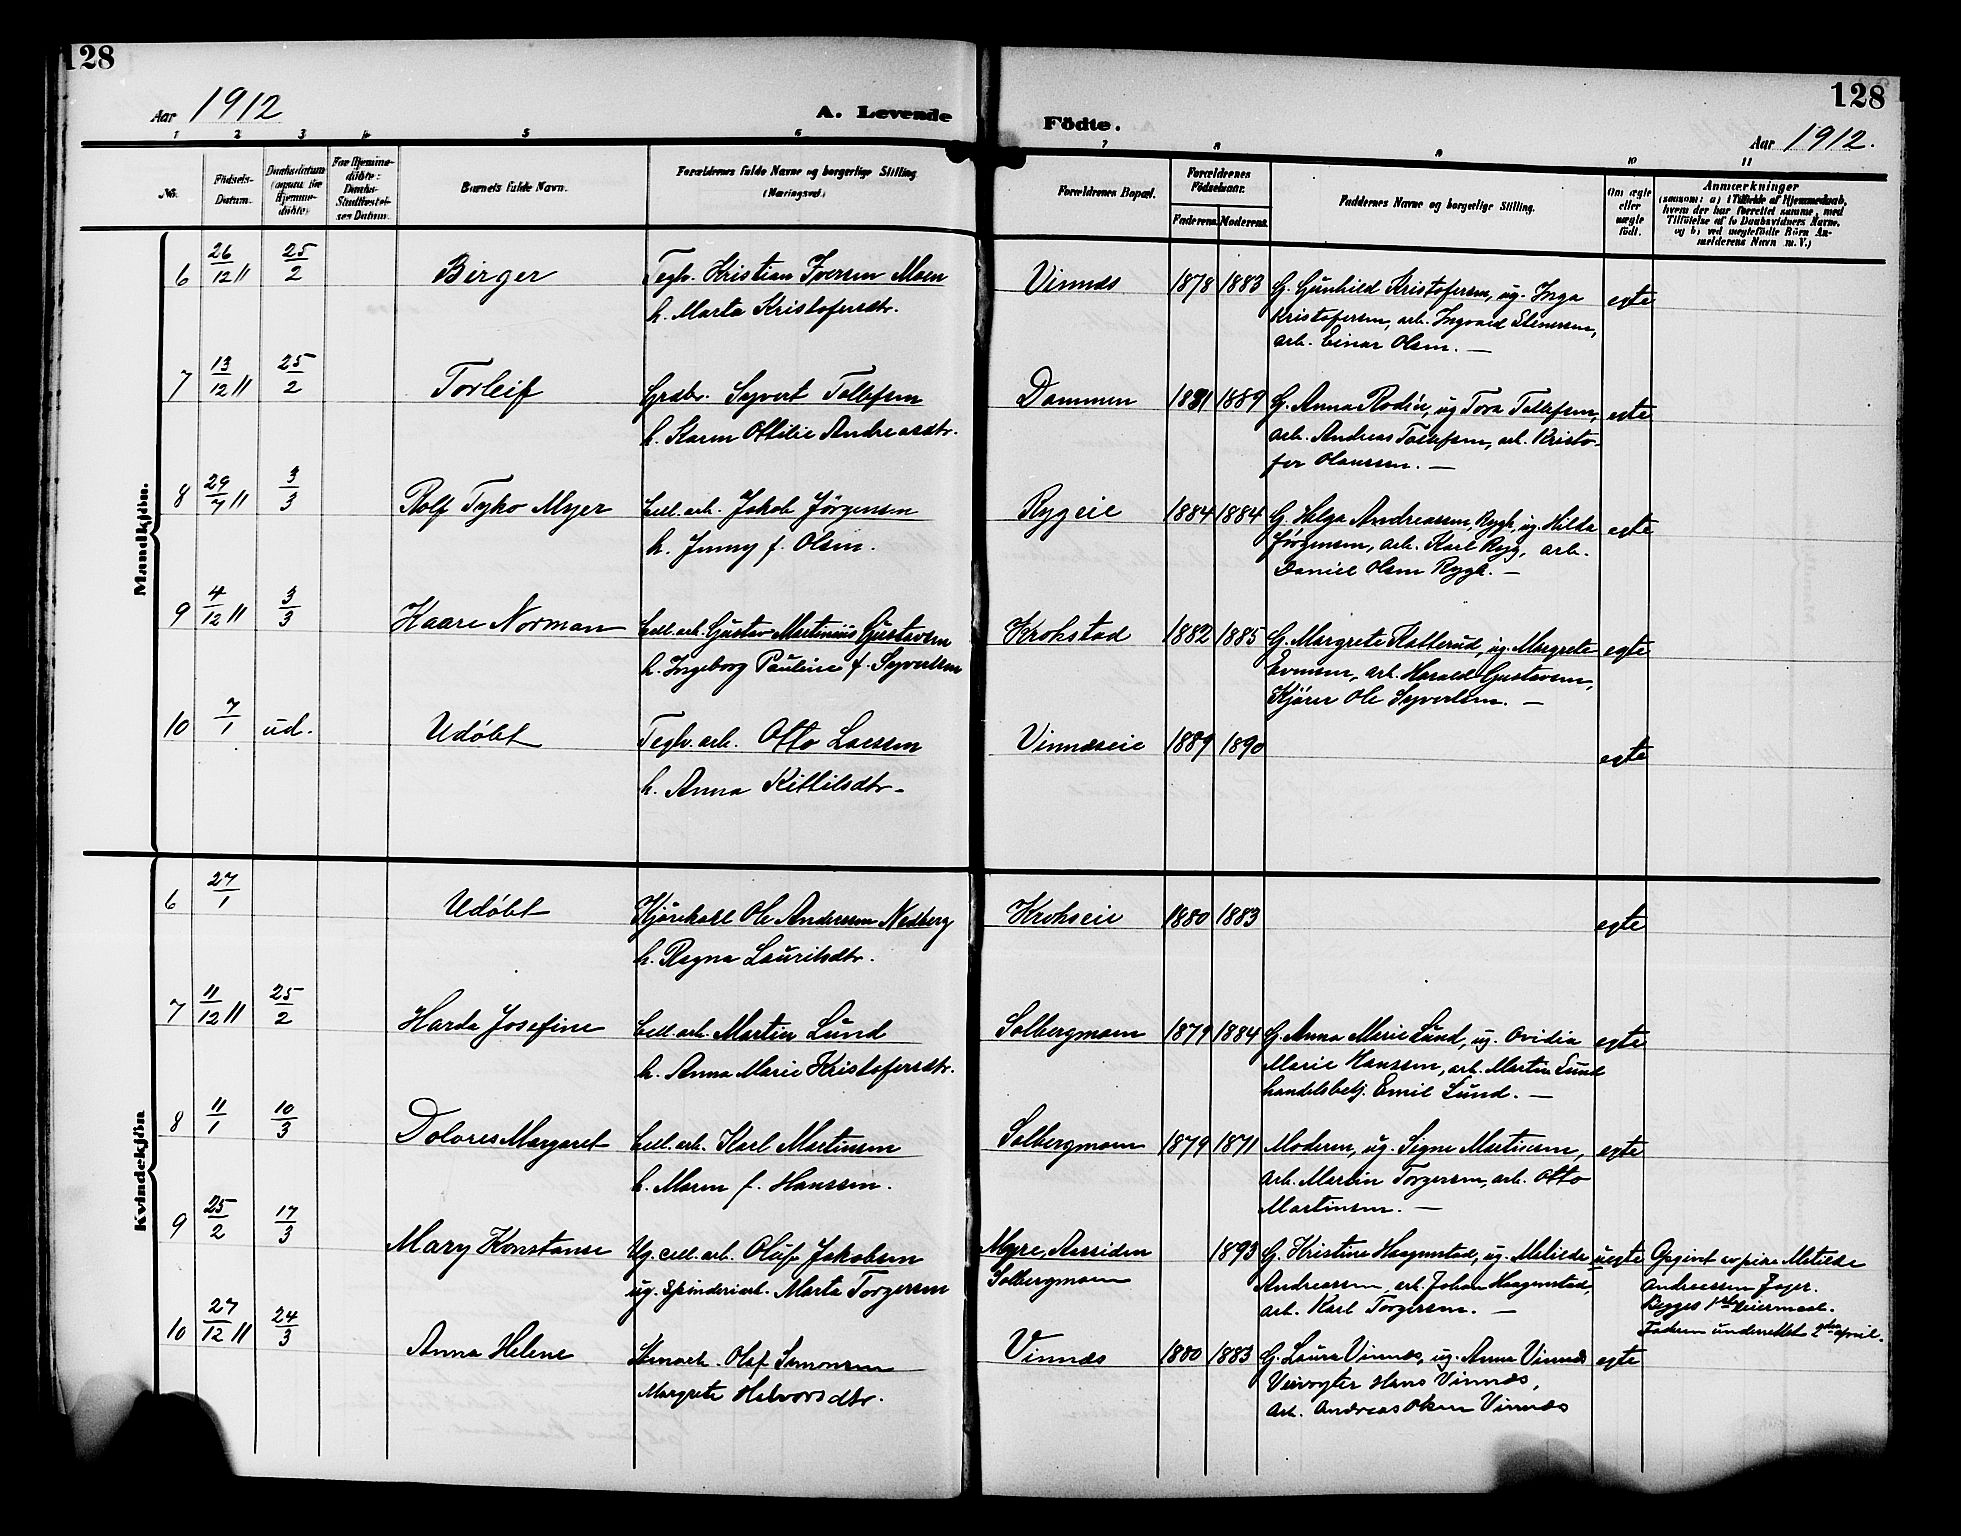 128
Aar 1912
A. Levende
Födte.
128
Aar 1912.
1 2 3 4 5 6 7 8 9 10 11
No.
Födsels-
Datum.
Daabsdatum
Barnets fulde Navn.
Forældrenes fulde Navne og borgerlige Stilling
(Næringsvei.)
Forældrenes Bopæl.
Forældrenes
Födselsaar.
Faderens Moderens
Faddernes Navne og borgerlige Stilling.
Om ægte
eller
uægte
födt.
Anmærkninger
Mandkjön.
6 26/12 11 25/2 Birger Teglv. Kristian Iversen Moen
h. Marta Kristofersdtr.
Vinnæs 1878 1883 G. Gunhild Kristofersen, ug. Inga
Kristofersen, arb. Ingvald Stenersen,
arb. Einar Olsen. —
egte
7 13/12 11 25/2 Torleif Grdbr. Syvert Tollefsen
h. Karen Ottilie Andreasdtr.
Dammen 1881 1889 G. Anna Rodin, ug Tora Tollefsen,
arb. Andreas Tollefsen, arb. Kristo-
fer Olaussen. —
egte
8 29/7 11 3/3 Rolf Tyko Myer Cell. arb. Jakob Jörgensen
h. Jenny f. Olsen.
Rygeie 1884 1884 G. Helga Andreassen, Rygh, ug. Hilda
Jørgensen, arb. Karl Ryg, arb.
Daniel Olsen Rygh. —
egte
9 4/12 11 3/3 Kaare Norman Cell. arb. Gustav Martinius Gustavsen
h. Ingeborg Pauline f. Syvertsen
Krokstad 1882 1885 G. Margrete Ratterud, ug. Margrete
Evensen, arb. Harald Gustavsen,
Kjörer Ole Syvertsen. —
egte
10 7/1 ud. Udöbt Teglv. arb. Otto Larssen
h. Anna Kittilsdtr.
Vinnæseie 1889 1890 egte
Kvindekjön
6 27/1 Udöbt Kjörekarl Ole Anderssen Nedberg
h. Ragna Lauritsdtr.
Krokseie 1880 1883 egte
7 11/12 11 25/2 Harda Josefine Cell. arb. Martin Lund
h. Anna Marie Kristofersdtr.
Solbergmoen 1879 1884 G. Anna Marie Lund, ug. Ovidia
Marie Hanssen, arb. Martin Lund
handelsbetj. Emil Lund. —
egte
8 11/1 10/3 Dolores Margaret Cell. arb. Karl Martinsen
h. Maren f. Hanssen.
Solbergmoen 1879 1871 Moderen, ug. Signe Martinsen,
arb. Martin Torgersen, arb. Otto
Martinsen. —
egte
9 25/2 17/3 Mary Konstanse Ug. cell. arb. Oluf Jakobsen
ug. Spinderiarb. Marta Torgersen
Myre, Aassiden
Solbergmoen
1893 G. Kristine Haagenstad, ug. Matilde
Andreassen, arb. Johan Haagenstad,
arb. Karl Torgersen. —
uegte Opgivet av pike Matilde
Andreassen Jager.
Begges 1ste leiermaal.
Faderen underrettet 2den april.
10 27/12 11 24/3 Anna Helene Olaf Simonsen
Margrete Halvorsdtr.
Vinnæs 1880 1883 G. Laura Vinnæs, ug. Anna Vinnæs
Veivogter Hans Vinnæs,
arb. Andreas Olsen Vinnæs
egte